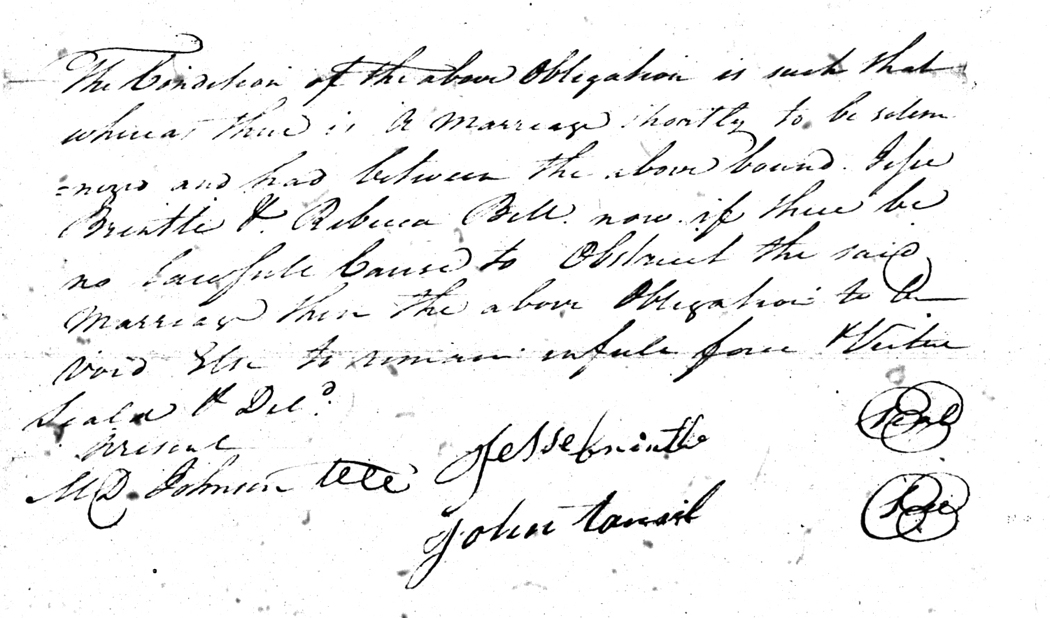 The Condition of the above Obligation is such that
whereas there is A Marriage shortly to be solem
=nized and had between the above bound Jesse
Brintle & Rebecca Bell now if there be
no lawfull Cause to Obstruct the said
Marriage then the above Obligation to be
void Else to remain infull force & Virtue
Seald & Deld.
Present
M D Johnson
Jesse brintle Seal
John tansil